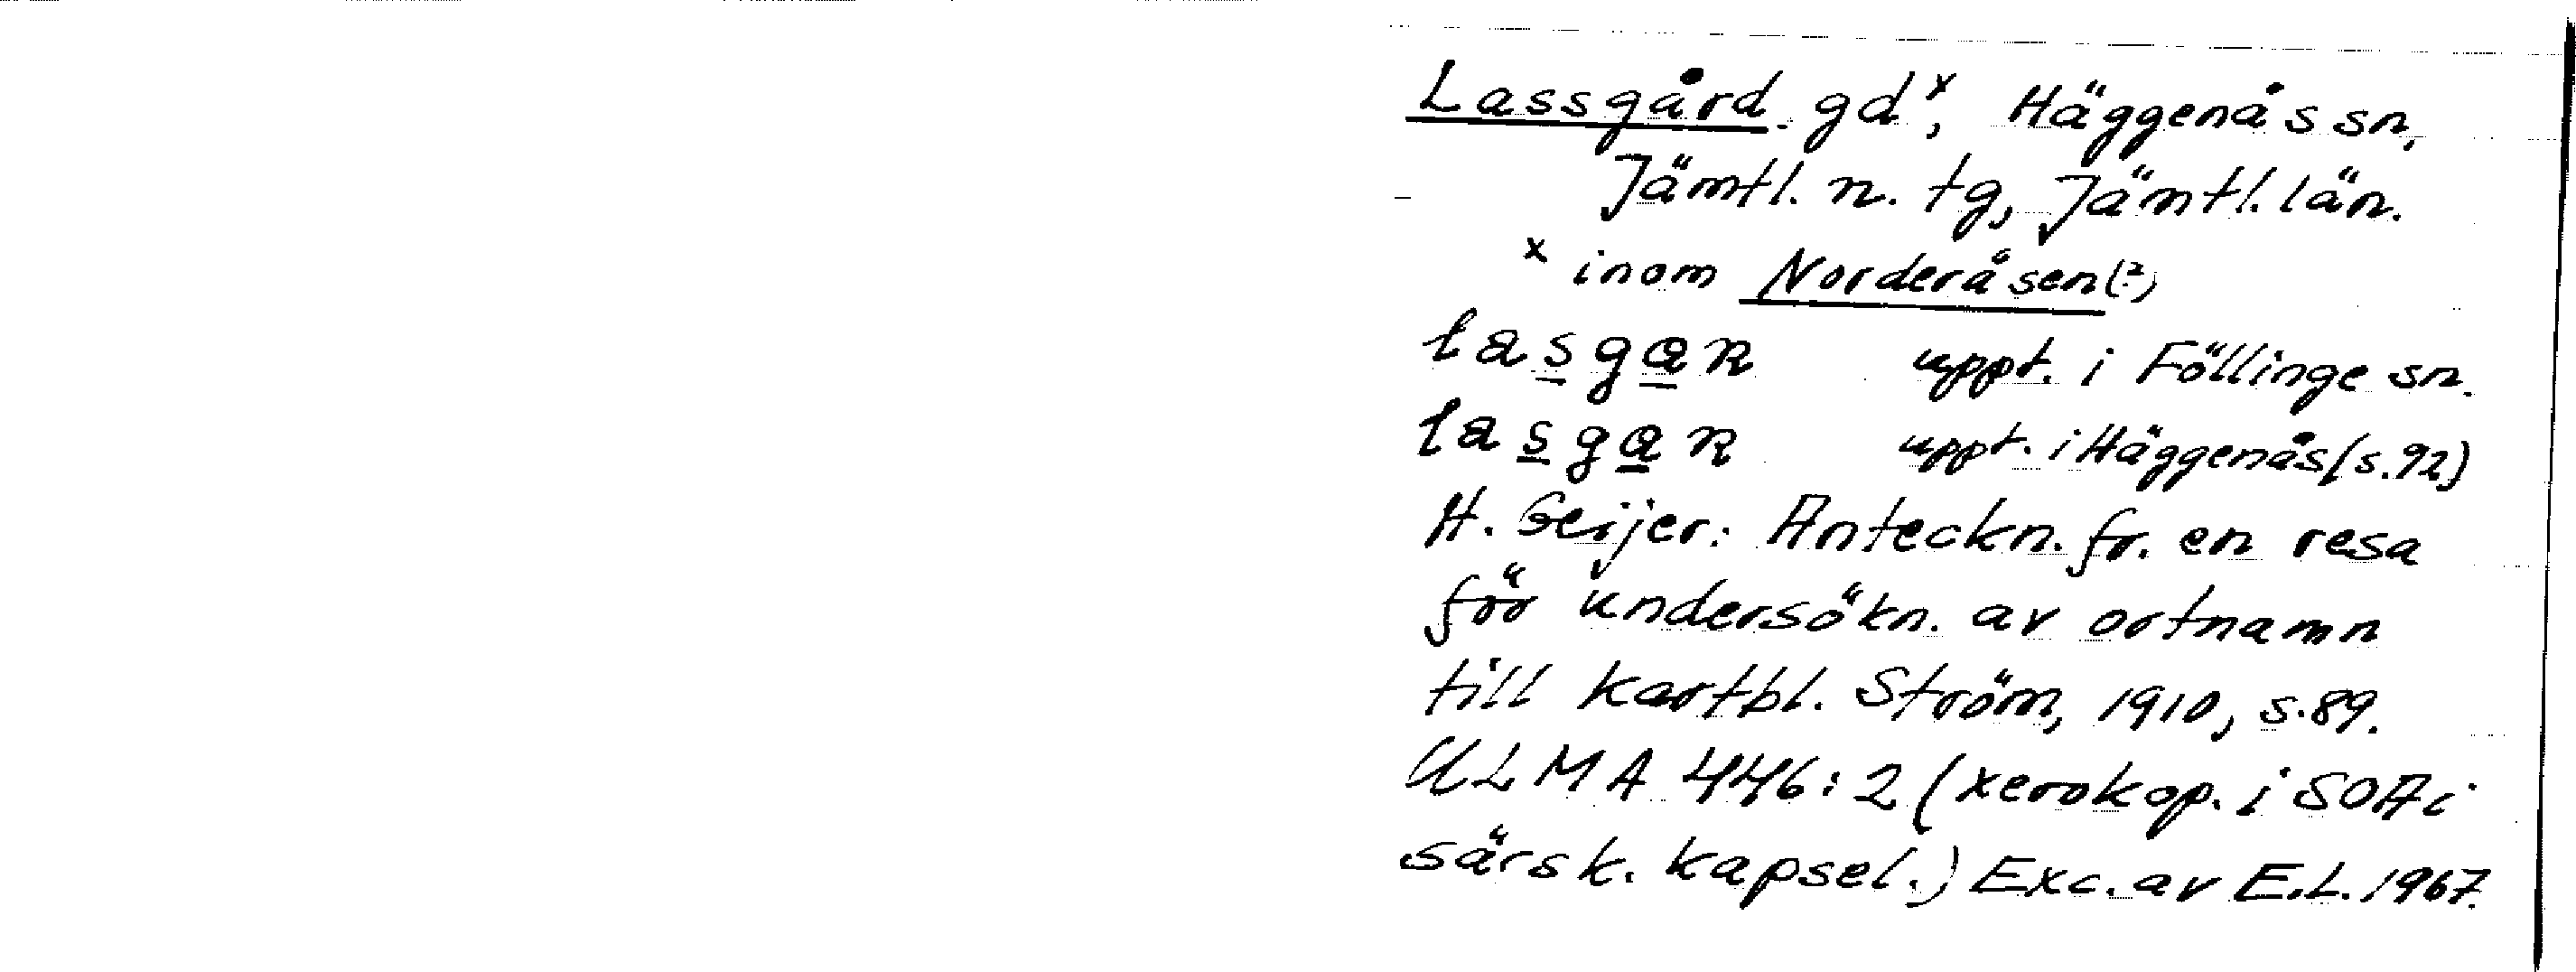 Lassgård. gdˣ, Häggenås sn,
Jämtl. n. tg, Jämtl. län.
ˣ inom Norderåsen(?)
lasgaɴ uppt. i Föllinge sn.
lasgaɴ uppt. i Häggenås (s. 92)
H. Geijer: Anteckn. fr. en resa
för undersökn. av ortnamn
till kartbl. Ström, 1910, s. 89.
ULMA 446:2 (xerokop. i SOA i
särsk. kapsel.) Exc. av E.L. 1967.